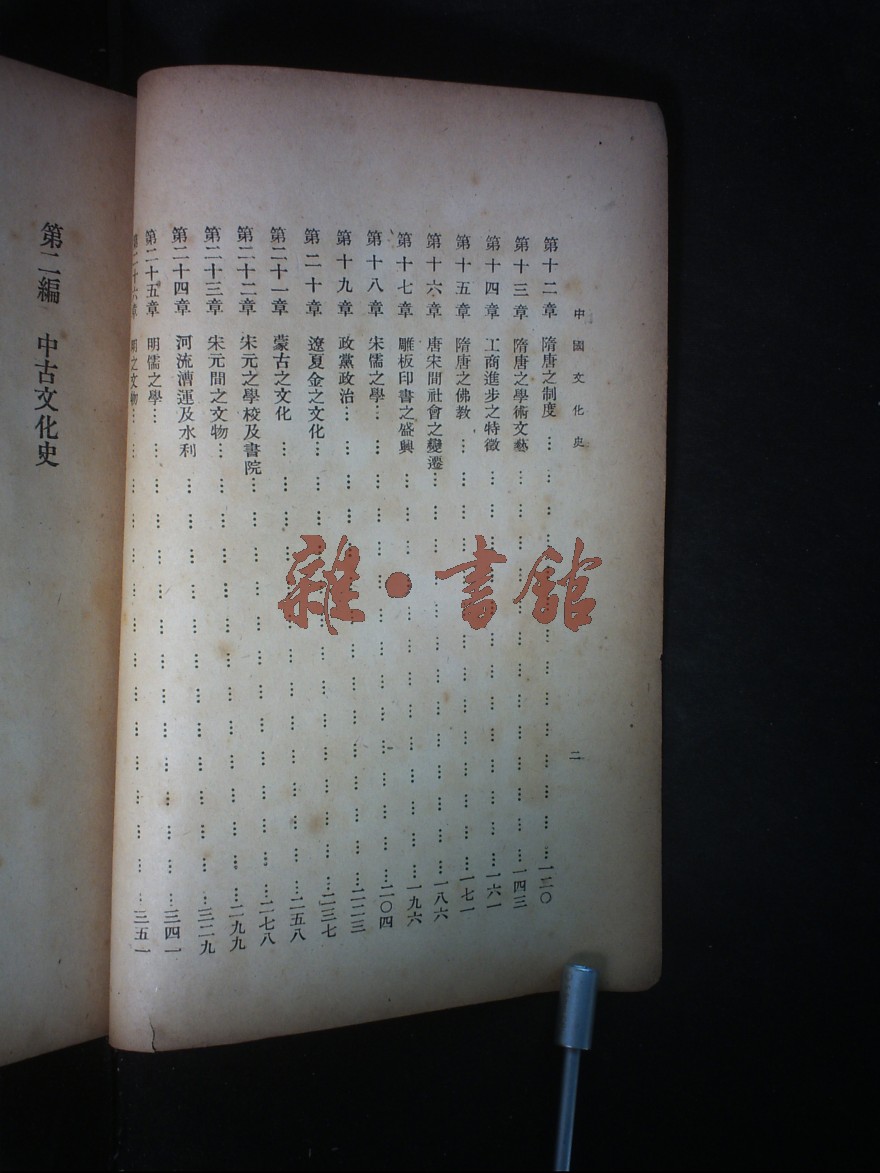 中國文化史
二
第十二章 隋唐之制度……一二〇
第十三章 隋唐之學術文藝……一四三
第十四章 工商進步之特徵……一六一
第十五章 隋唐之佛教……一七一
第十六章 唐宋間社會之變遷……一八六
第十七章 雕板印書之盛興……一九六
第十八章 宋儒之學……二〇四
第十九章 政黨政治……二二三
第二十章 遼夏金之文化……二三七
第二十一章 蒙古之文化……二五八
第二十二章 宋元之學校及書院……二七八
第二十三章 宋元間之文物……二九九
第二十四章 河流漕運及水利……三二九
第二十五章 明儒之學……三四一
第二十六章 明之文物……三五一
第二編 中古文化史
雜·書館